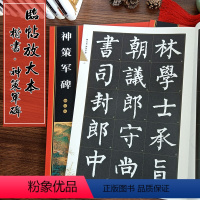 临帖放大本
楷书·神策军碑
神策军碑
林學士承旨
朝議郎守尚
書司封郎中
粉象优品